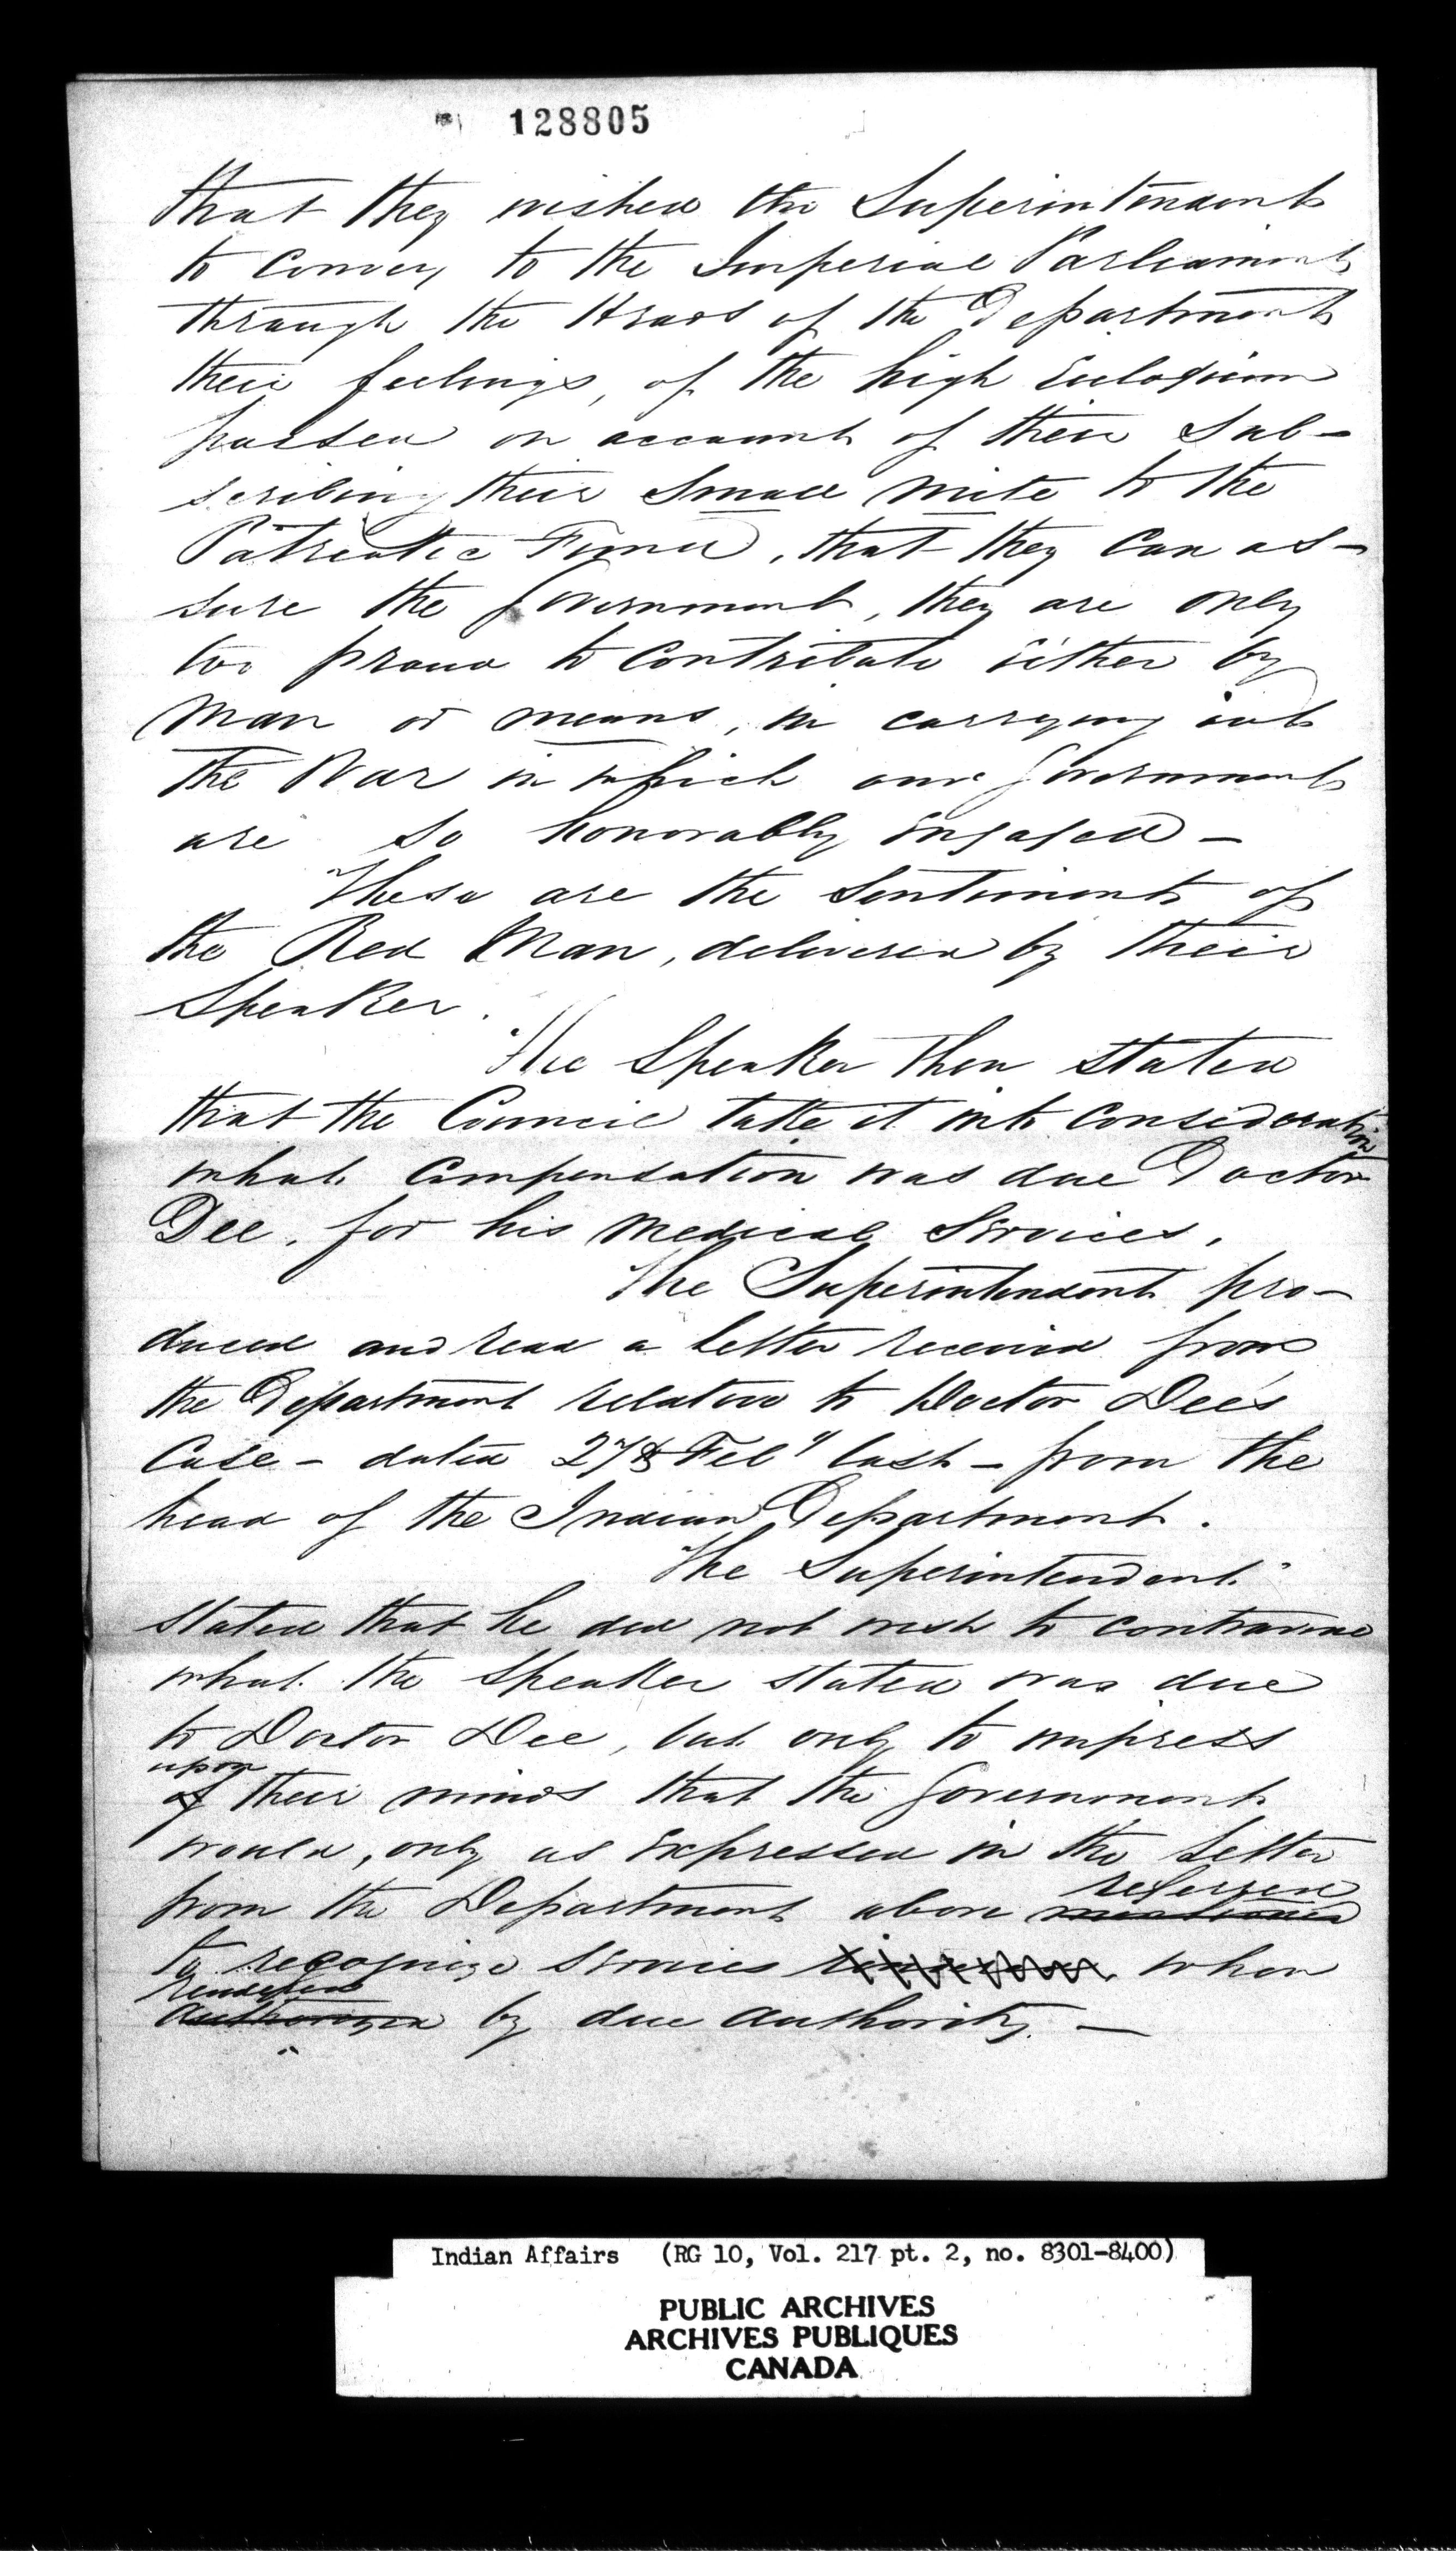 128805
that they wished the Superintendent
to convey to the Imperial Parliament
through the Heads of the Department
their feelings, of the high Eulogium
passed on account of their Sub-
scribing their Small mite to the
Patriotic Fund, that they can as-
sure the Government, they are only
too proud to contribute either by
Man or means, in carrying out
the War in which our Government
are so honorably engaged -
These are the Sentiments of
the Red Man, delivered by their
Speaker.
The Speaker then stated
that the Council take it into consideration
what compensation was due Doctor
Dee, for his Medical Services.
The Superintendent pro-
duced and read a letter received from
the Department relative to Doctor Dee's
Case - dated 27th Feby last - from the
head of the Indian Department.
The Superintendent
stated that he did not wish to contravene
what the Speaker stated was due
to Doctor Dee, but only to impress
upon
of their minds that the Government
would, only as expressed in the letter
referred
from the Department above mentioned
to recognize services when
rendered
authorized by due authority. -
Indian Affairs (RG 10, Vol. 217 pt. 2, no. 8301-8400)
PUBLIC ARCHIVES
ARCHIVES PUBLIQUES
CANADA